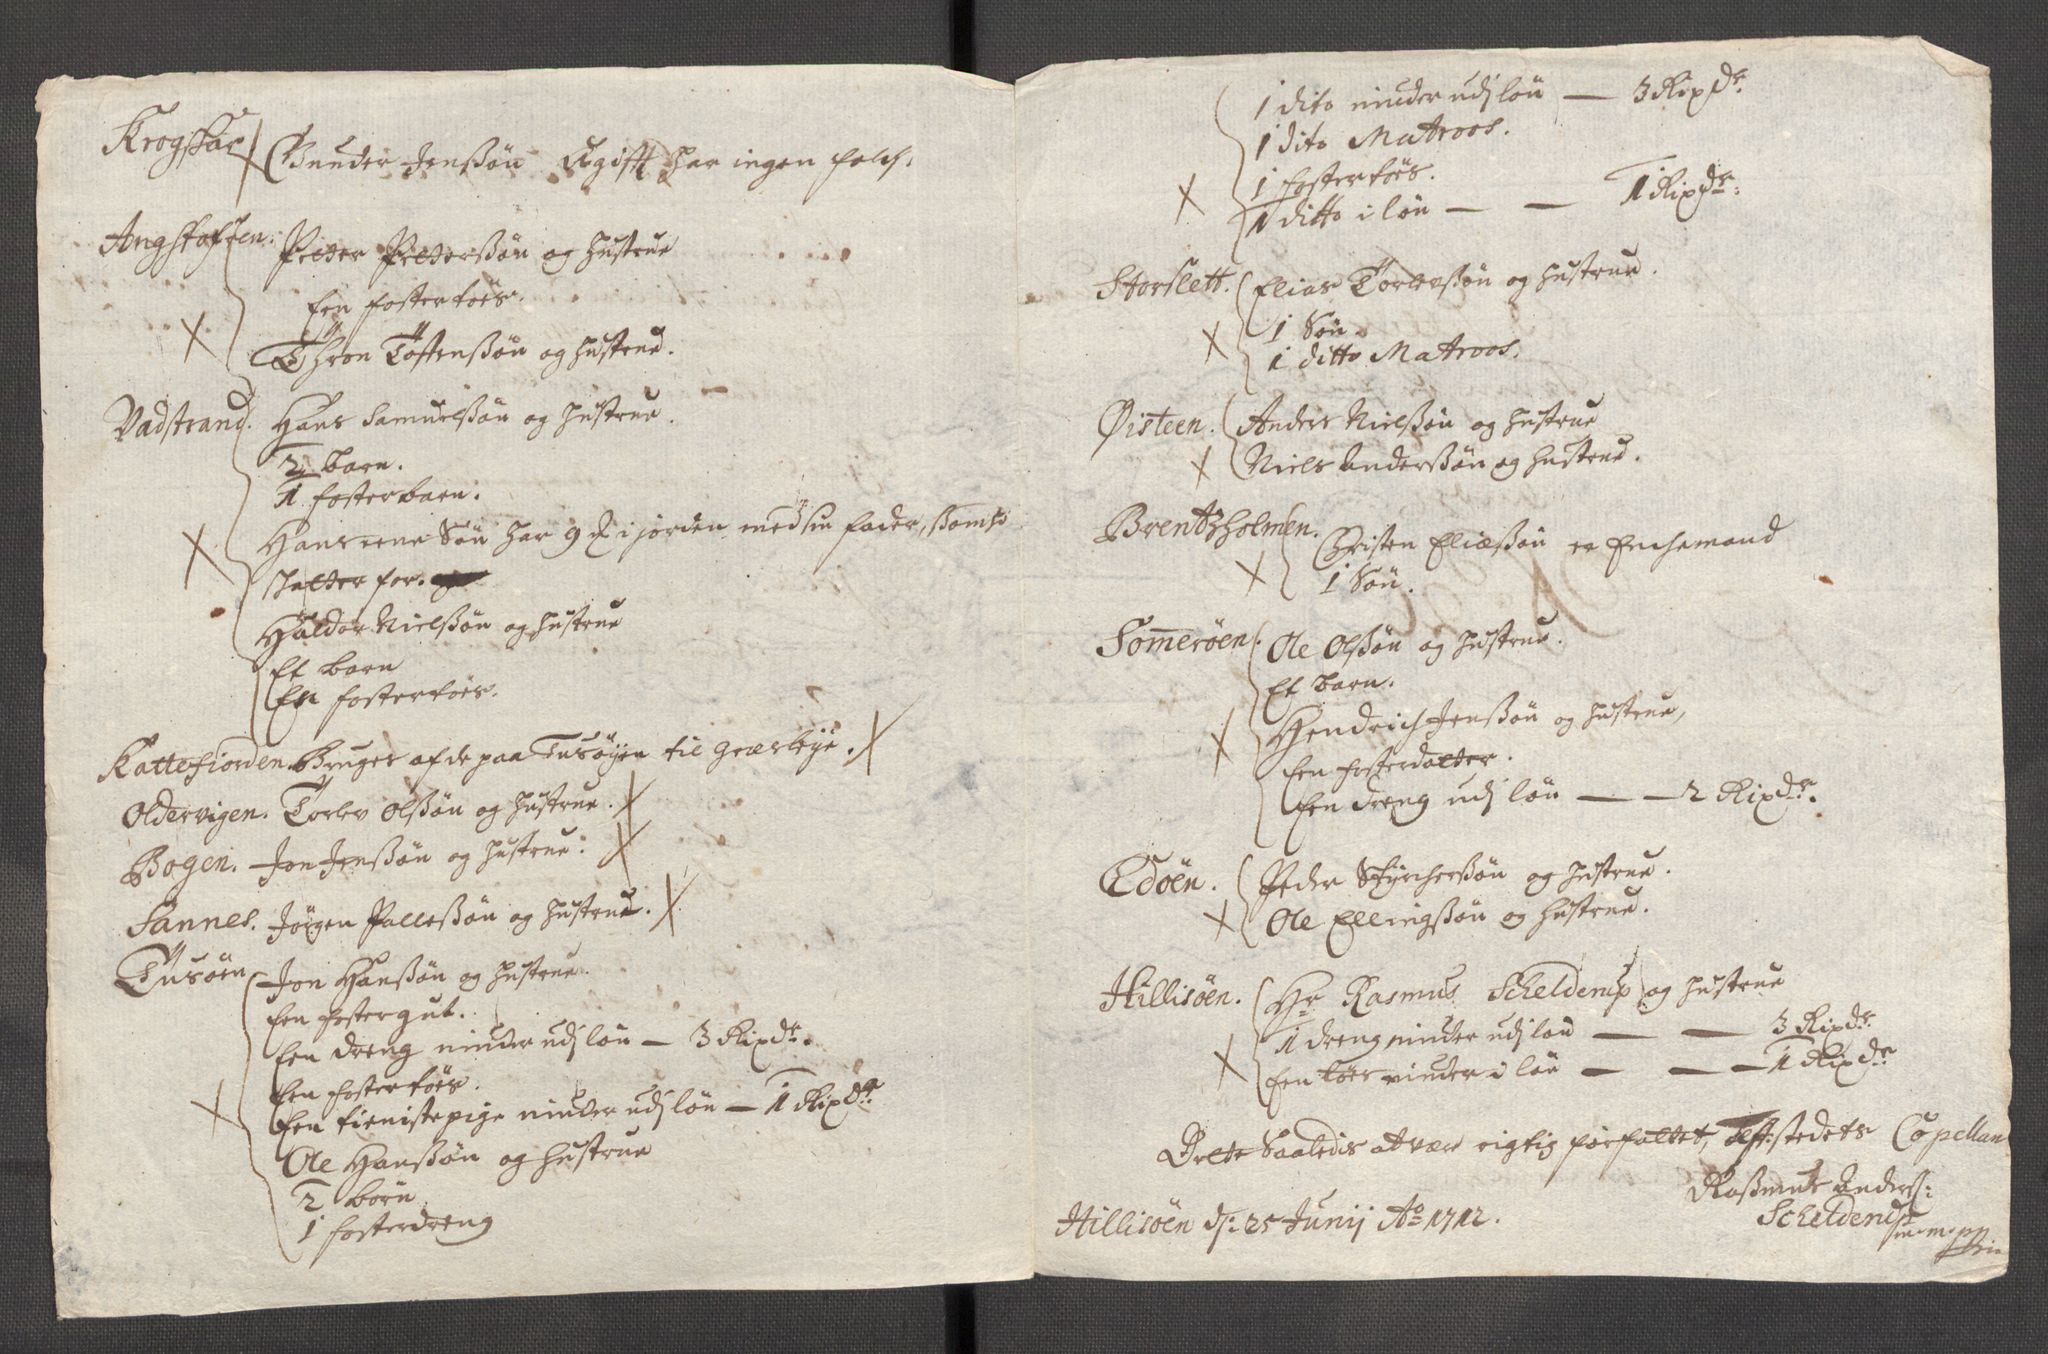 Krogskar Gunder Jenßøn Ugift har ingen folch.
Angstoften. Peter Peterßøn og hustrue
Een fostertøes.
Thron Tostenßøn og hustrue.
Vadstrand. Hans Samuelßøn og hustrue.
2 barn.
1 fosterbarn.
Hans eene Søn har 9 ℔ i jorden med sin fader, som hand
skatter for.
Haldor Nielßøn og hustrue
Et barn
En fostertøes.
Kattefiorden. Bruges af de paa Tusøyen til græsleye.
Oldervigen. Torlev Olßøn og hustrue.
Bogen. Jon Jenßøn og hustrue.
Sannes. Jørgen Palleßøn og hustrue.
Tusøen Jon Hanßøn og hustrue.
Een fostergut.
Een dreng ninder udj løn — 3 Rixdr.
Een fostertøes.
Een tienistepige ninder udj løn — 1 Rixdr.
Ole Hanßøn og hustrue
2 børn
1 fosterdreng
1 dito ninder udj løn — 3 Rixdr.
1 dito Matroos.
1 fostertøes.
1 ditto i løn — — 1 Rixdr.
Storslett. Elias Torlevßøn og hustrue.
1 Søn.
1 ditto Matroos.
Øisteen. Anders Nielßøn og hustrue
Niels Anderßøn og hustrue.
Brentzholmen. Christen Eliæßøn er Enchemand
1 Søn.
Somerøen. Ole Olßøn og hustrue.
Et barn.
Hendrich Jenßøn og hustrue,
Een fosterdatter.
Een dreng udj løn — — 2 Rixdr.
Edøen. Peder Styrcherßøn og hustrue.
Ole Ellingßøn og hustrue.
Hillisøen. Hr Rasmus Schelderup og hustrue
1 dreng ninder udj løn — — 3 Rixdr.
Een tøes ninder i løn — — — 1 Rixdr
Dette Saaledis at være rigtig forfattet, Test: stedets Capellan
Raßmus Anders:
Schelderup
Hillisøen d: 25 Junij Ao 1712.
m m pp